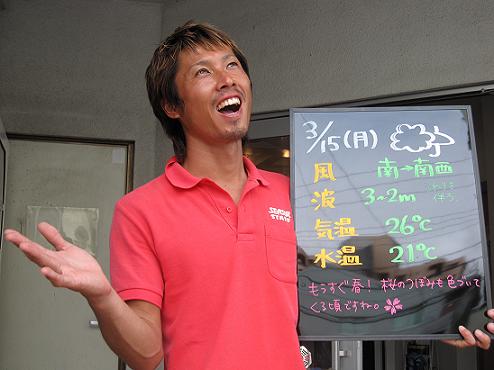 3/15(月)
風 南→南西
波 3~2m うねり伴う
気温 26℃
水温 21℃
もうすぐ春!桜のつぼみも色づいて
くる頃ですね。